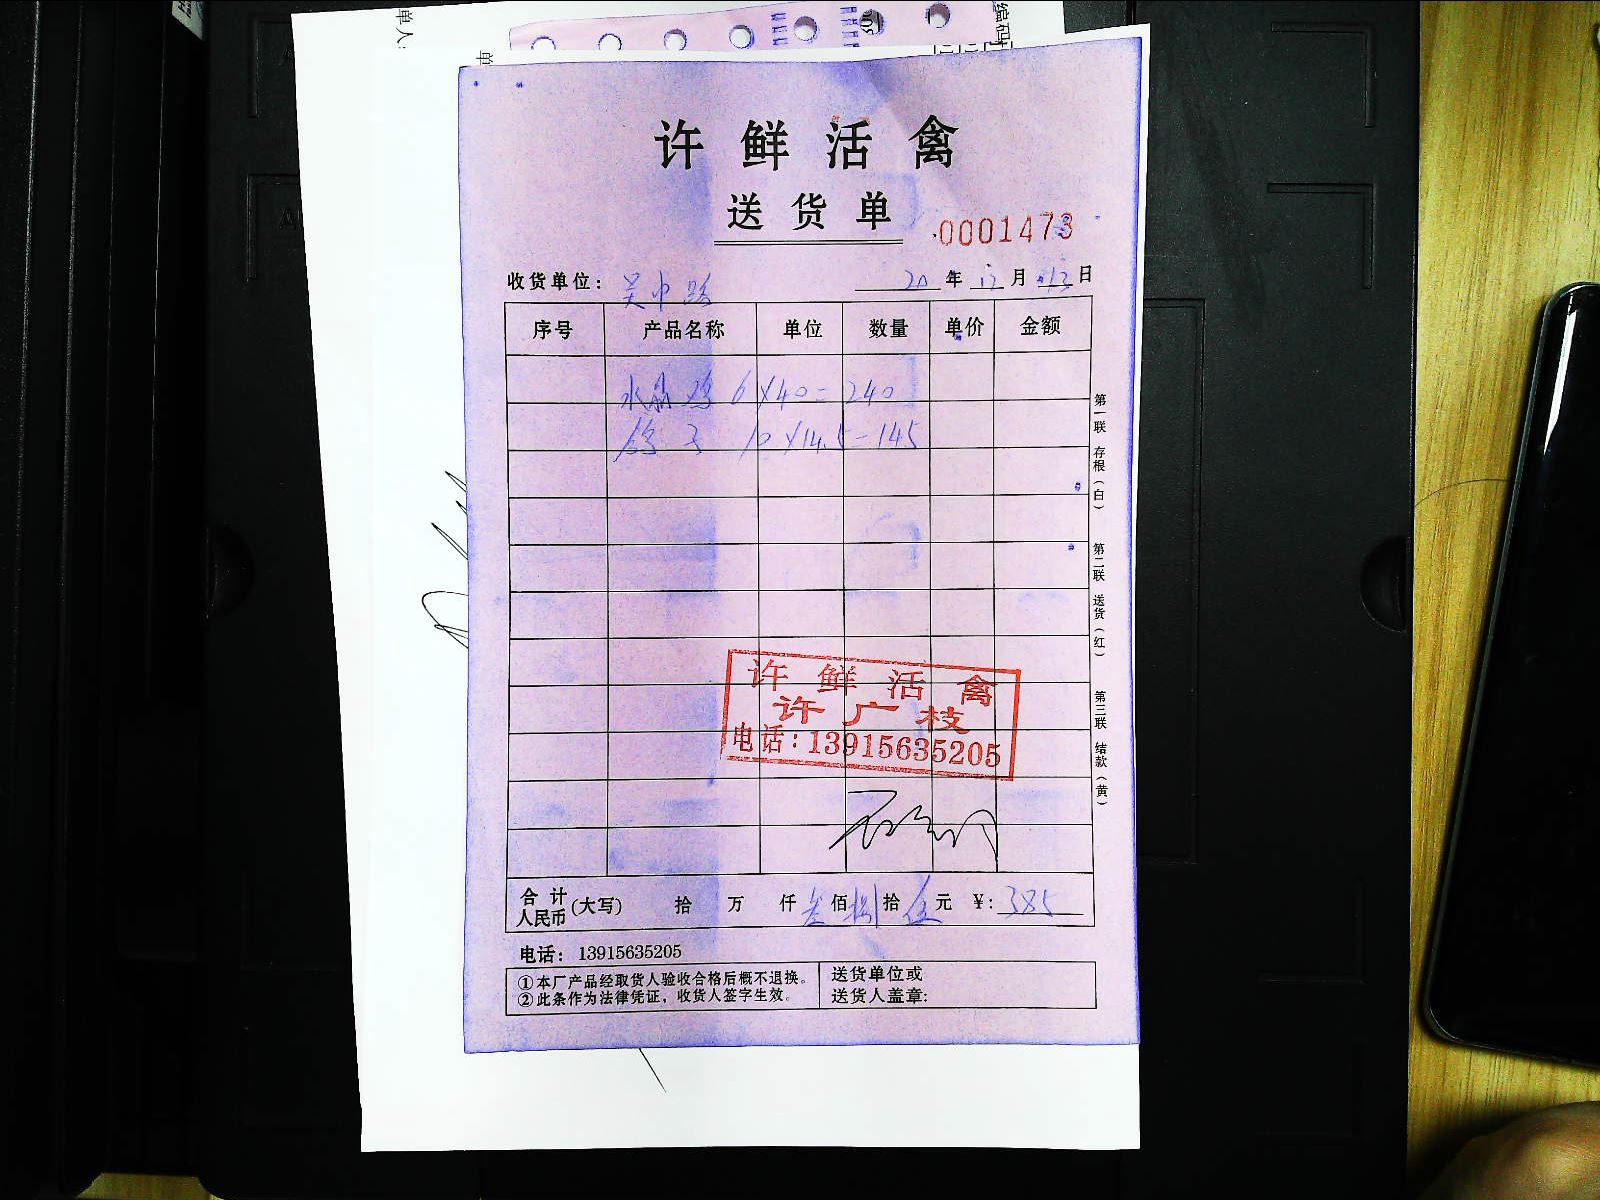 单人:
单
编码
许鲜活禽
送货单
0001473
收货单位: 吴中路 20年12月13日
序号 产品名称 单位 数量 单价 金额
水晶鸡 6×40=240
鸽子 10×14.5=145
第一联 存根(白)
第二联 送货(红)
第三联 结款(黄)
许鲜活禽
许广枝
电话:13915635205
合计人民币(大写) 拾 万 仟 叁佰捌拾伍元 ¥:385
电话: 13915635205
①本厂产品经取货人验收合格后概不退换。
②此条作为法律凭证,收货人签字生效。
送货单位或
送货人盖章: